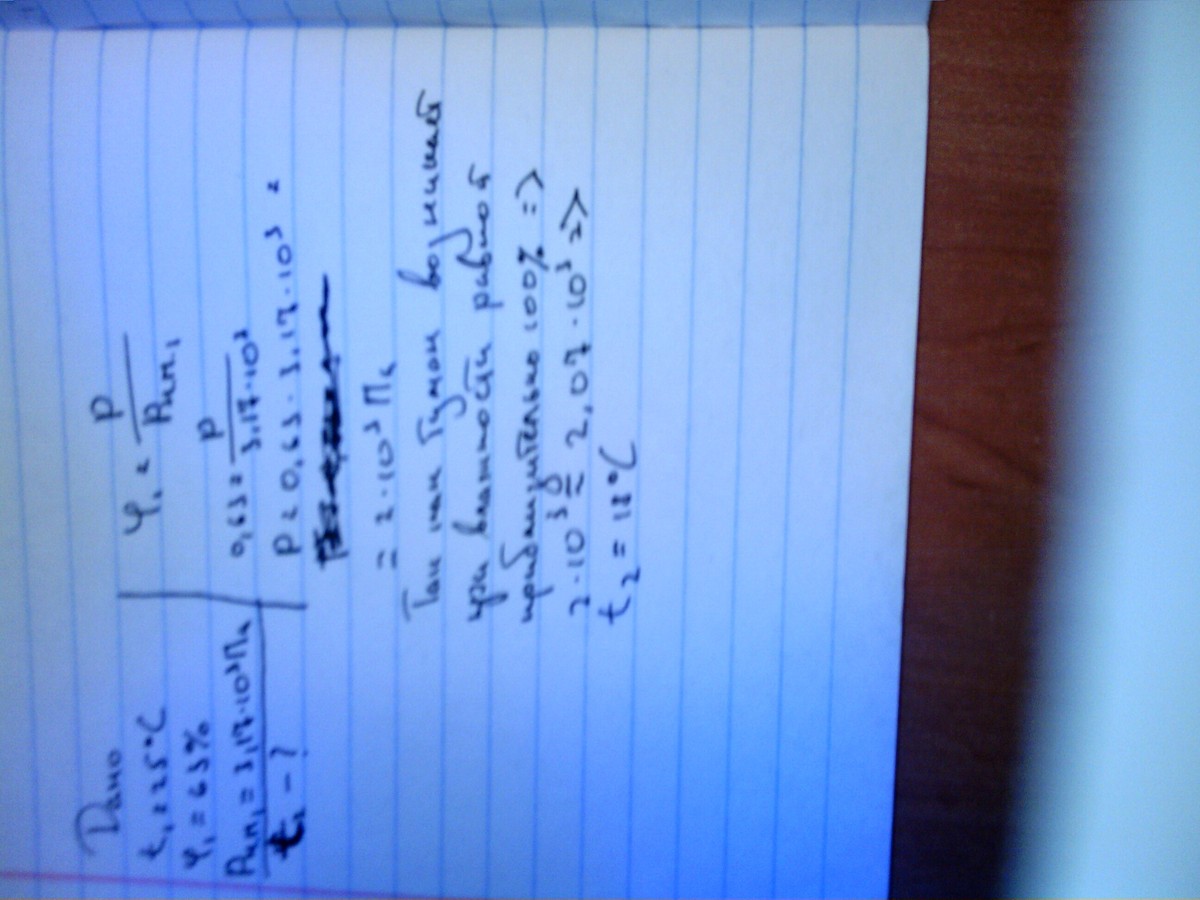 Дано
t₁ = 25°C
φ₁ = 63%
Pнп₁ = 3,17·10³ Па
t₂ - ?
φ₁ = P / Pнп₁
0,63 = P / 3,17·10³
P = 0,63 · 3,17 · 10³ =
= 2 · 10³ Па
Так как туман возникает
при влажности равной
приблизительно 100% =>
2·10³ ≈ 2,07 · 10³ =>
t₂ = 18°C